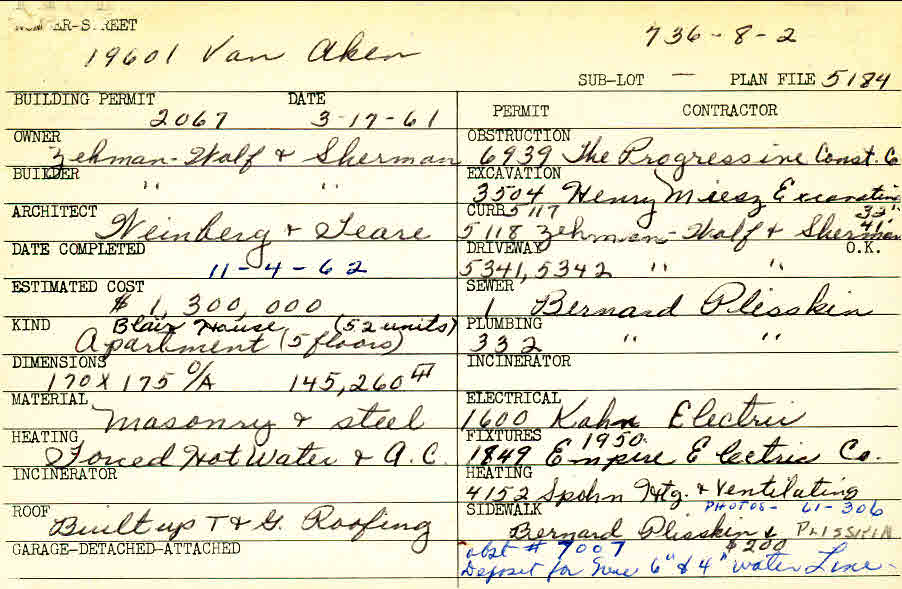 NUMBER-STREET
19601 Van Aken 736-8-2
SUB-LOT — PLAN FILE 5184
BUILDING PERMIT DATE
2067 3-17-61
OWNER
Zehman-Wolf & Sherman
BUILDER
" "
ARCHITECT
Weinberg & Teare
DATE COMPLETED
11-4-62
ESTIMATED COST
$1,300,000
KIND Blair House (52 units)
Apartment (5 floors)
DIMENSIONS
170 X 175 O/A 145,260
MATERIAL
Masonry & steel
HEATING
Forced Hot Water & A.C.
INCINERATOR
ROOF
Built up T & G. Roofing
GARAGE-DETACHED-ATTACHED
PERMIT CONTRACTOR
OBSTRUCTION
6939 The Progressive Const. Co
EXCAVATION
3504 Henry Miesz Excavating
CURB 5117 33"
5118 Zehman-Wolf & Sherman 41'
DRIVEWAY O.K.
5341, 5342 " "
SEWER
1 Bernard Plisskin
PLUMBING
332 " "
INCINERATOR
ELECTRICAL
1600 Kahn Electric
FIXTURES 1950
1849 Empire Electric Co.
HEATING
4152 Spohn Htg. & Ventilating
SIDEWALK PHOTOS- 61-306
Bernard Plisskin & PLISSKIN
obst # 7007 $200
Deposit for 6" & 4" water Line